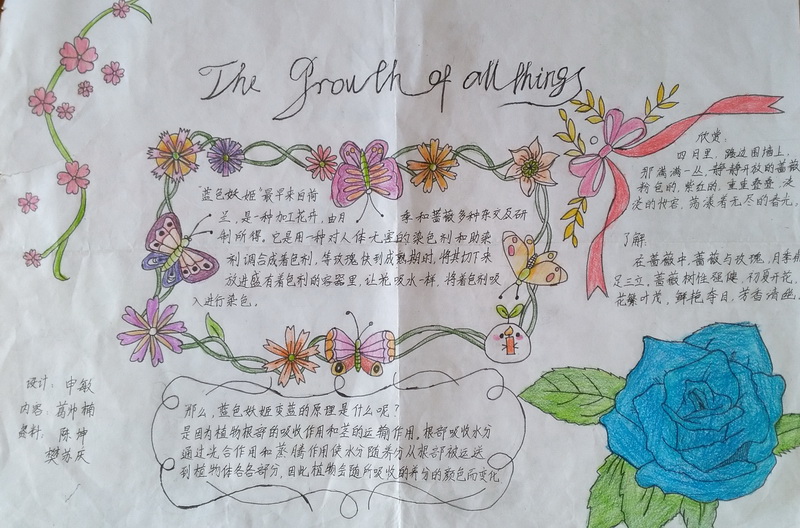 The Growth of all things
"蓝色妖姬"最早来自荷
兰,是一种加工花卉,由月季和蔷薇多种杂交及研
制所得。它是用一种对人体无害的染色剂和助染
剂调合成着色剂,等玫瑰快到成熟期时,将其切下来
放进盛有着色剂的容器里,让花吸水一样,将着色剂吸
入进行染色。
欣赏:
四月里,踏过围墙上,
那满满一丛静静开放的蔷薇
粉色的,紫色的,重重叠叠,淡
淡的妆容,荡漾着无尽的春光。
了解:
在蔷薇中,蔷薇与玫瑰,月季
足三立,蔷薇树性强健,初夏开花,
花繁叶茂,鲜艳夺目,芳香清幽
设计:申敏
内容:
资料:陈坤
樊苏庆
那么,蓝色妖姬变蓝的原理是什么呢?
是因为植物根部的吸收作用和茎的运输作用。根部吸收水分
通过光合作用和蒸腾作用使水分随养分从根部被运送
到植物体各各部分,因此植物会随所吸收的养分的颜色而变化